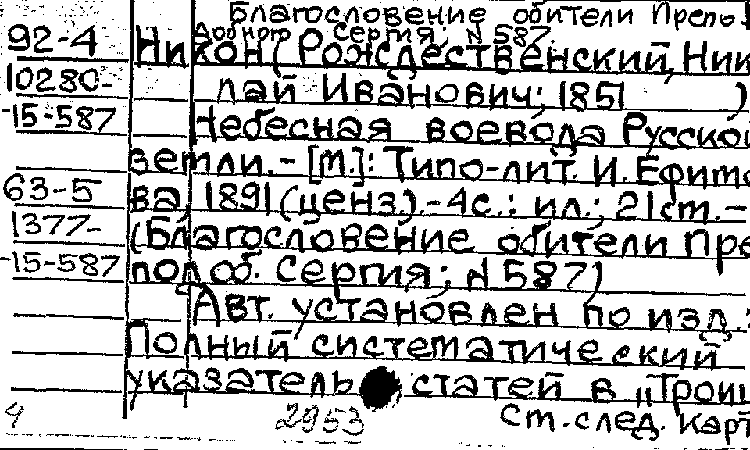 Благословение обители Препо-
добного Сергия; N 587
92-4 Никон (Рождественский, Ник
10280- лай Иванович; 1851 )
-15-587 Небесная воевода Русской
земли. - [М.]: Типо-лит. И. Ефимо
63-5 ва, 1891 (ценз.). - 4с.: ил.; 21см. -
1377- (Благословение обители Пре
-15-587 подоб. Сергия; N 587)
Авт. установлен по изд.:
Полный систематический
указатель статей в „Трои
4 2953 См. след. карт